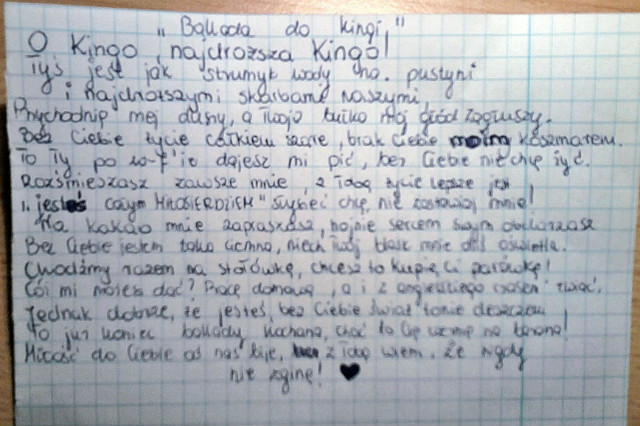 „Ballada do Kingi"
O Kingo, najdroższa Kingo!
Tyś jest jak strumyk wody na pustyni
i najdroższymi skarbami naszymi.
Przychodnio mej duszy, a Twoja bułka mój głód zagłuszy.
Bez Ciebie życie całkiem szare, brak Ciebie moim koszmarem.
To Ty po w-f'ie dajesz mi pić, bez Ciebie nie chcę żyć.
Rozśmieszasz zawsze mnie, z Tobą życie lepsze jest
„jesteś całym MIŁOSIERDZIEM" słyszeć chcę, nie zostawiaj mnie!
Na kakao mnie zapraszasz, hojnie sercem swym obdarzasz
Bez Ciebie jestem taka ciemna, niech Twój blask mnie oświetla.
Chodźmy razem na stołówkę, chcesz to kupię Ci parówkę!
Cói mi możesz dać? Pracę domową, a i z angielskiego czasem
Jednak dobrze, że jesteś, bez Ciebie świat tonie deszczem
To już koniec ballady, kochana, choć to Cię weźmie na banana!
Miłość do Ciebie od nas bije, z Tobą wiem, że nigdy
nie zginę!